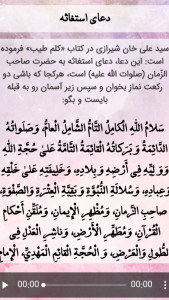 دعای استغاثه
سید علی خان شیرازی در کتاب «کلم طیب» فرموده
است: این دعا، دعای استغاثه به حضرت صاحب
الزّمان (صلوات الله علیه) است، هرکجا که باشی دو
رکعت نماز بخوان و سپس زیر آسمان رو به قبله
بایست و بگو:
سَلامُ اللَّهِ الْكامِلُ التَّامُّ الشَّامِلُ الْعامُّ، وَ صَلَواتُهُ
الدَّائِمَةُ وَ بَرَكاتُهُ الْقائِمَةُ التَّامَّةُ عَلىٰ حُجَّةِ اللَّهِ
وَ وَلِيِّهِ فِي أَرْضِهِ وَ بِلادِهِ، وَ خَلِيفَتِهِ عَلىٰ خَلْقِهِ
وَ عِبادِهِ، وَ سُلالَةِ النُّبُوَّةِ وَ بَقِيَّةِ الْعِتْرَةِ وَ الصَّفْوَةِ،
صاحِبِ الزَّمانِ، وَ مُظْهِرِ الْإِيمانِ، وَ مُلَقِّنِ أَحْكامِ
الْقُرْآنِ، وَ مُطَهِّرِ الْأَرْضِ، وَ ناشِرِ الْعَدْلِ فِي
الطُّولِ وَ الْعَرْضِ، وَ الْحُجَّةِ الْقائِمِ الْمَهْدِيِّ، الْإِمامِ
00:00 00:00